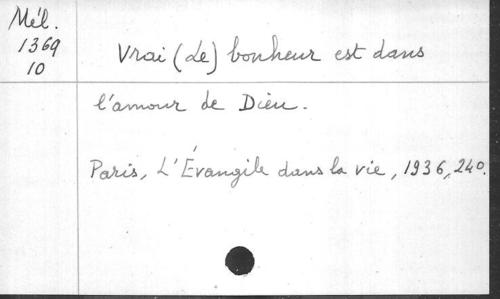 Mél.
1369
10
Vrai (Le) bonheur est dans
l'amour de Dieu.
Paris, L'Évangile dans la vie, 1936, 240.